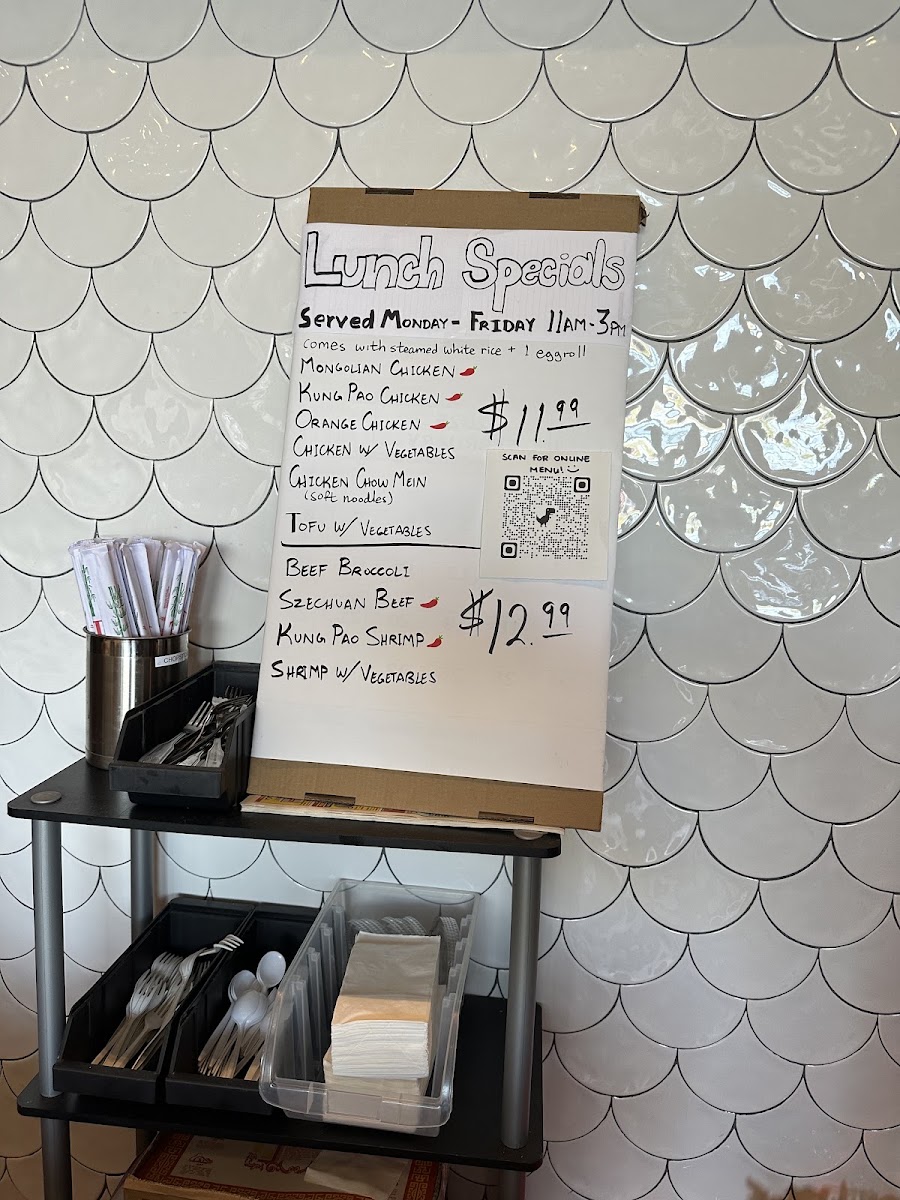 Lunch Specials
Served Monday - Friday 11AM-3PM
comes with steamed white rice + 1 eggroll
Mongolian Chicken
Kung Pao Chicken
Orange Chicken
$11.99
Chicken w/ Vegetables
Chicken Chow Mein
(soft noodles)
Tofu w/ Vegetables
SCAN FOR ONLINE
MENU!
Beef Broccoli
Szechuan Beef
Kung Pao Shrimp
$12.99
Shrimp w/ Vegetables